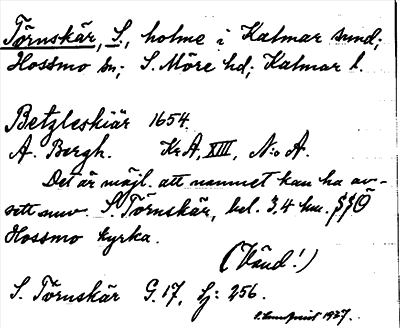 Törnskär, S., holme i Kalmar sund;
Hossmo sn; S. Möre hd; Kalmar l.
Betzleskiär 1654.
A. Bergh. KrA, XIII, N:o A.
Det är möjl. att namnet kan ha av-
sett nuv. S. Törnskär, bel. 3.4 km. SSÖ
Hossmo kyrka.
(Vänd!)
S. Törnskär G. 17, Lj: 256.
1937.